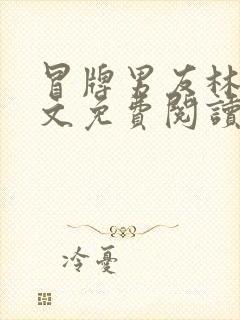 冒牌男友林
文免費閱讀
冷憂